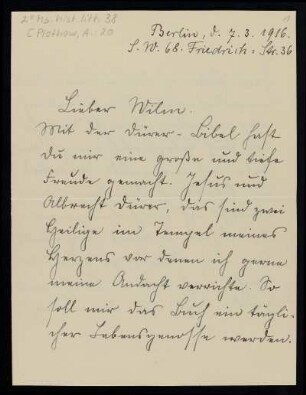 2° Ms. hist. litt. 38
Berlin, d. 7. 3. 1916.
S. W. 68. Friedrich-Str. 36
Lieber Wilm.
Mit der Dürer-Bibel hast
du mir eine große und tiefe
Freude gemacht. Jesus und
Albrecht Dürer, das sind zwei
Heilige im Tempel meines
Herzens vor denen ich gerne
meine Andacht verrichte. So
soll mir das Buch ein tägli-
cher Lebensgenosse werden.